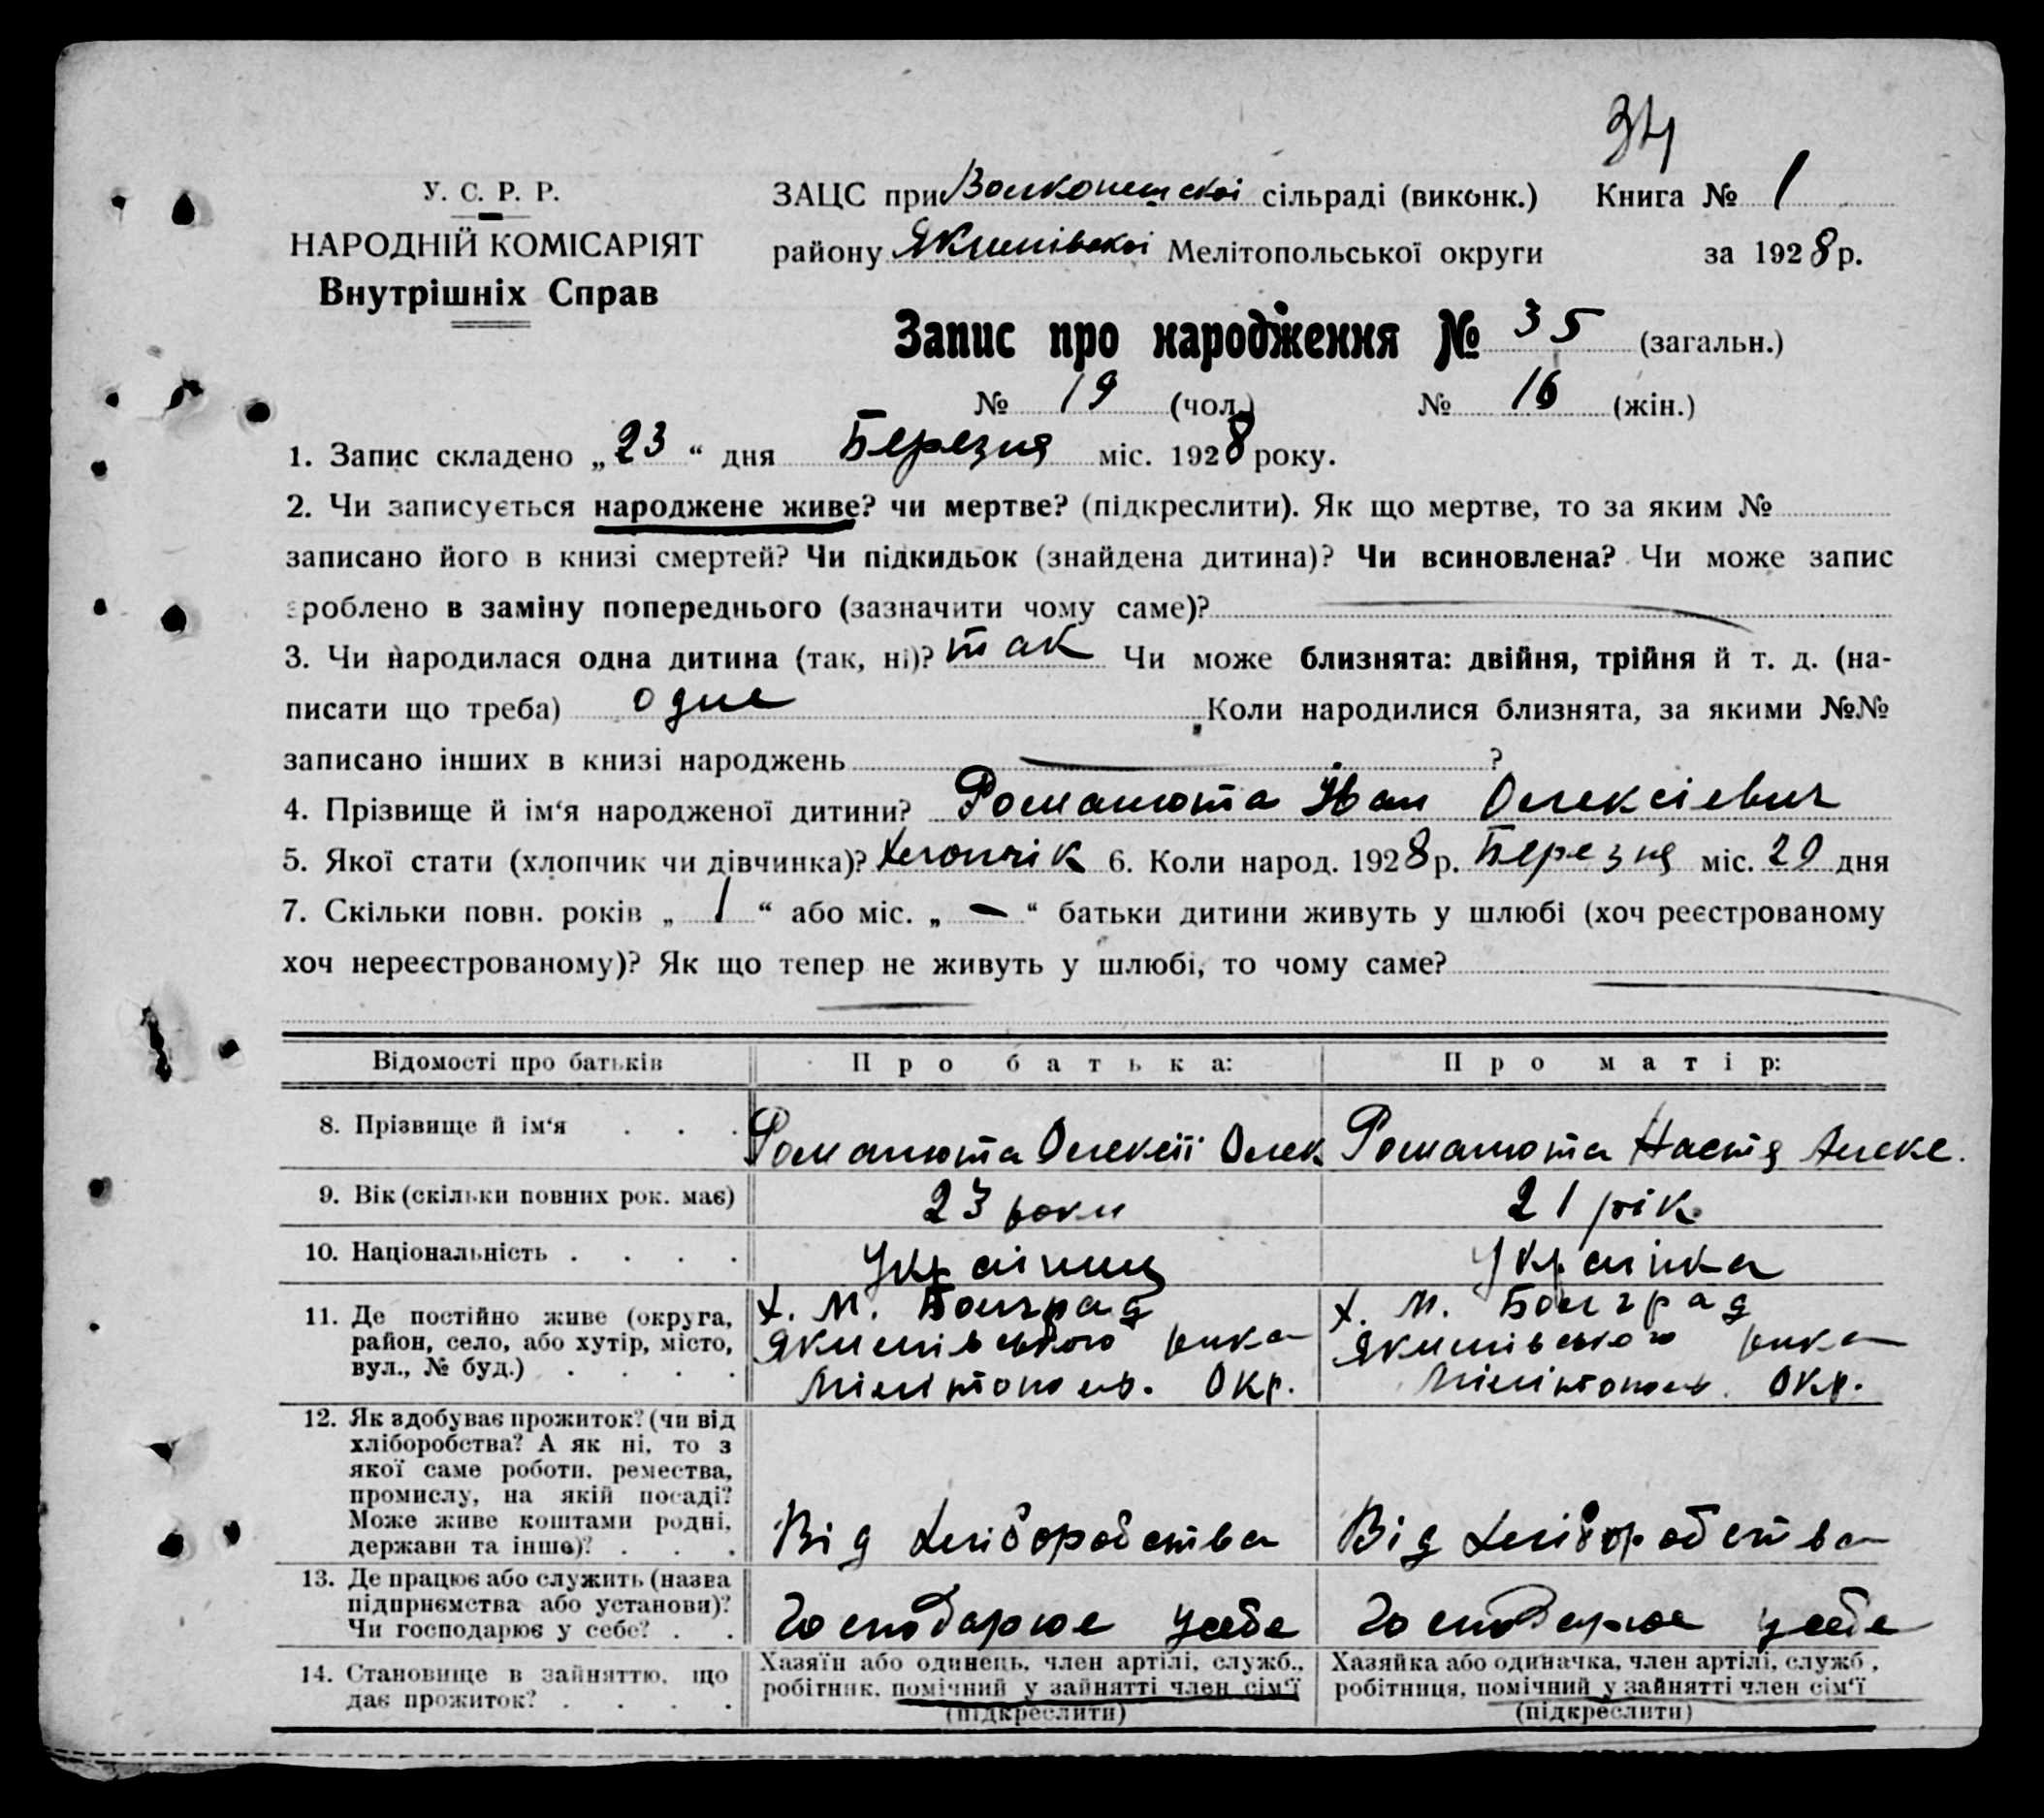 34
У. С. Р. Р.
НАРОДНІЙ КОМІСАРІЯТ
Внутрішніх Справ
ЗАЦС при сільраді (виконк.) Книга № 1
району Якимівської Мелітопольської округи за 1928 р.
Запис про народження № 35 (загальн.)
№ 19 (чол.) № 16 (жін.)
1. Запис складено „23“ дня Березня міс. 1928 року.
2. Чи записується народжене живе? чи мертве? (підкреслити). Як що мертве, то за яким №
записано його в книзі смертей? Чи підкидьок (знайдена дитина)? Чи всиновлена? Чи може запис
зроблено в заміну попереднього (зазначити чому саме)?
3. Чи народилася одна дитина (так, ні)? так Чи може близнята: двійня, трійня й т. д. (на-
писати що треба) одне Коли народилися близнята, за якими №№
записано інших в книзі народжень ?
4. Прізвище й ім‘я народженої дитини? Романюта Іван Олексієвич
5. Якої стати (хлопчик чи дівчинка)? Хлопчік 6. Коли народ. 1928 р. Березня міс. дня
7. Скільки повн. років „ 1 “ або міс. „ — “ батьки дитини живуть у шлюбі (хоч реєстрованому
хоч нереєстрованому)? Як що тепер не живуть у шлюбі, то чому саме?
Відомості про батьків Про батька: Про матір:
8. Прізвище й ім‘я . . . Романюта Олексій Олек Романюта Настя Алекс.
9. Вік (скільки повних рок. має) 23 роки 21 рік
10. Національність . . . . Українец Українка
11. Де постійно живе (округа,
район, село, або хутір, місто,
вул., № буд.) . . . .
х. М. Болград
Якимівського рика
Мілітополь. Окр.
х. М. Болград
Якимівського рика
Мілітополь. Окр.
12. Як здобуває прожиток? (чи від
хліборобства? А як ні, то з
якої саме роботи, ремества,
промислу, на якій посаді?
Може живе коштами родні,
держави та інше)? . . .
Від хліборобства Від хліборобства
13. Де працює або служить (назва
підприємства або установи)?
Чи господарює у себе? . .
Господарює у себе Господарює у себе
14. Становище в зайняттю, що
дає прожиток? . . . .
Хазяїн або одинець, член артілі, служб.,
робітник, помічний у зайнятті член сім‘ї
(підкреслити)
Хазяйка або одиначка, член артілі, служб.,
робітниця, помічний у зайнятті член сім‘ї
(підкреслити)